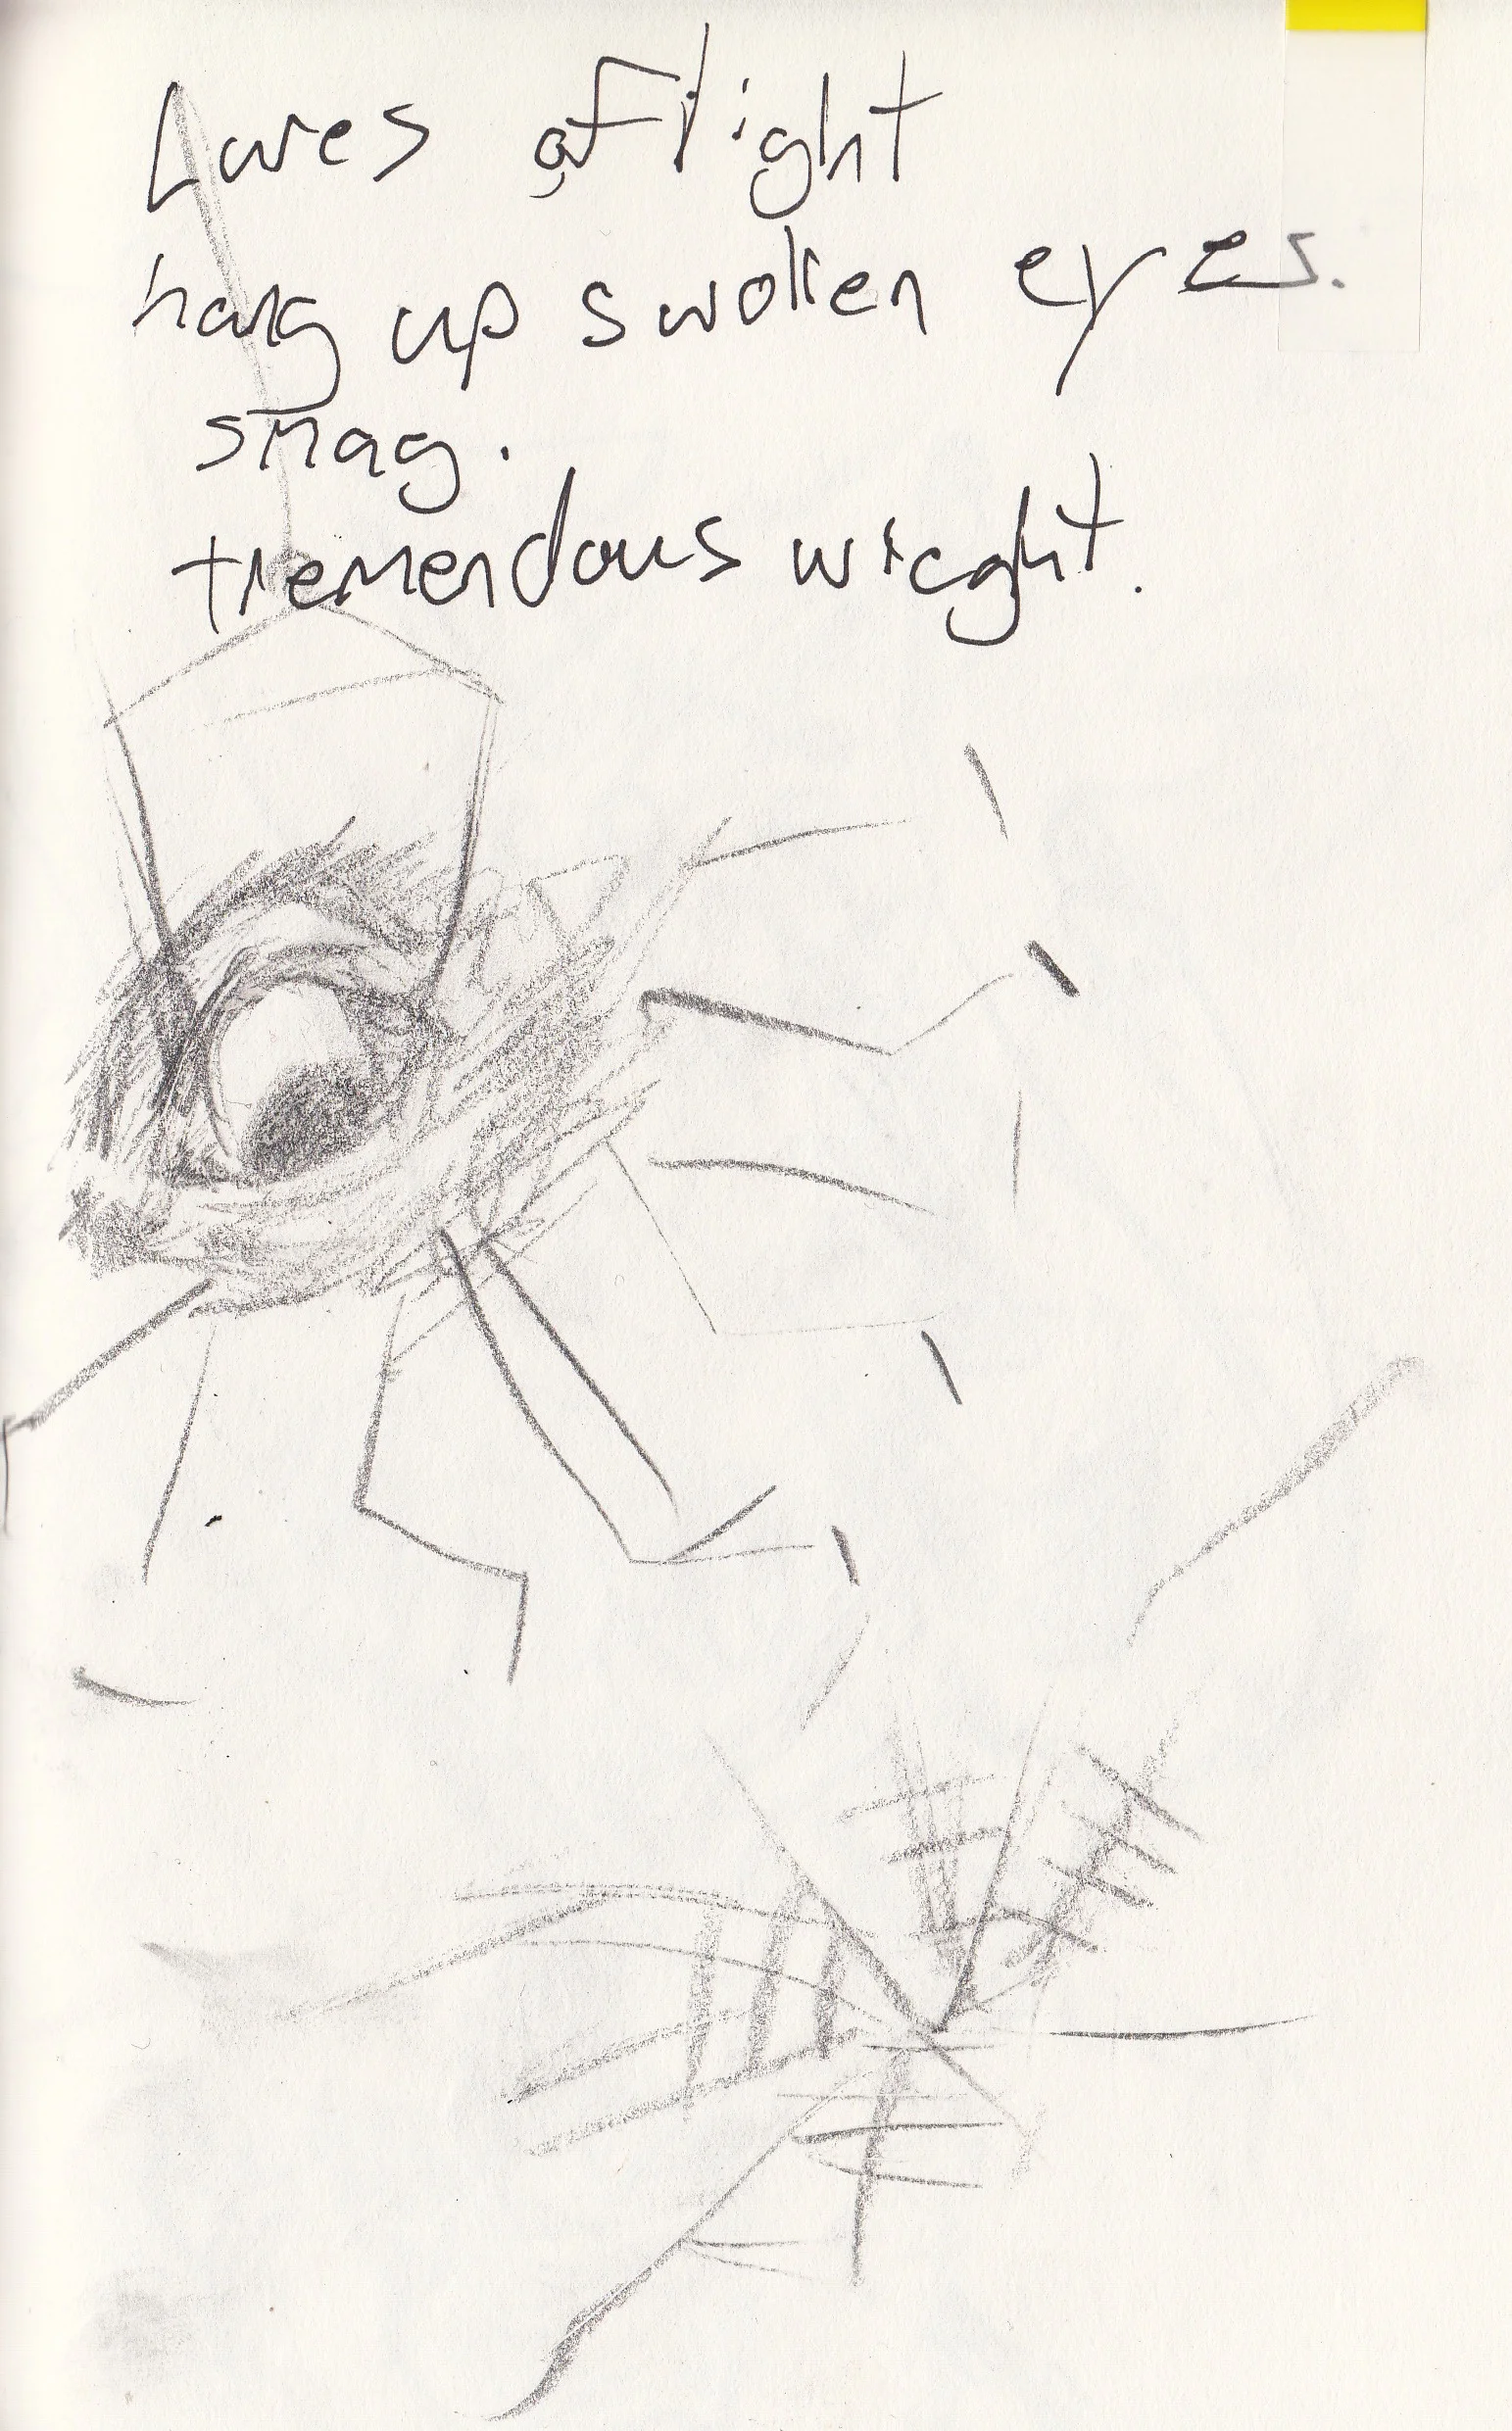 Lures of light
hang up swollen eyes.
snag.
tremendous wieght.